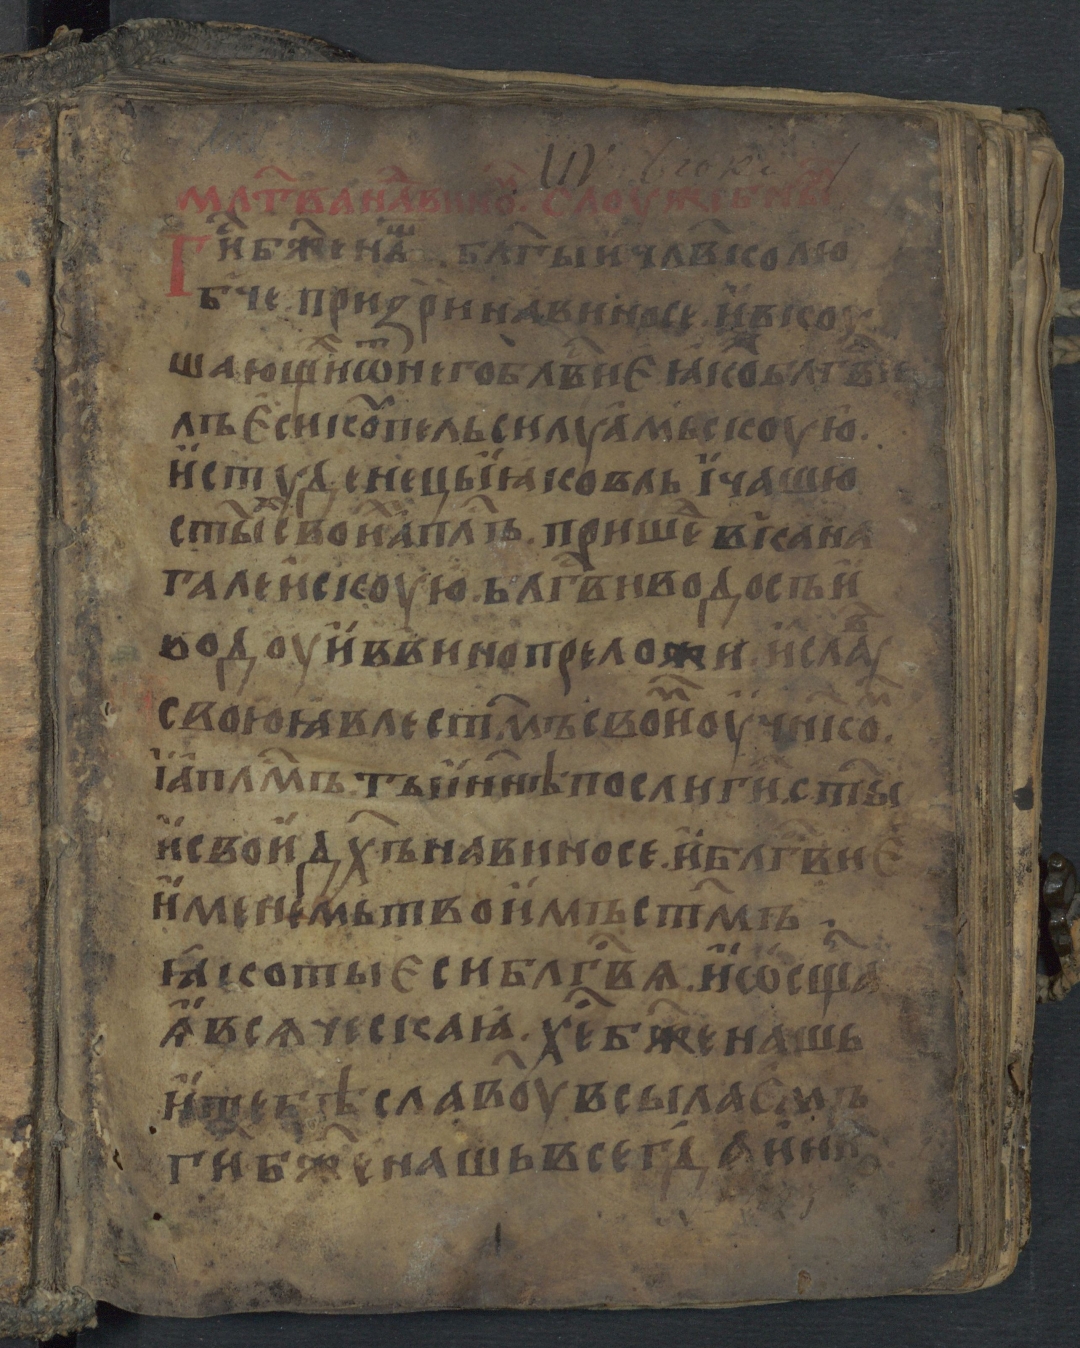 млт҃ва над вино҃. слоужебны҃
Ги҃ бж҃е на҃ш. блг҃ыи чл҃вколю
бч҃е призри на вино се. и вкоу
шающи҃ ѿ него бл҃вние ꙗко блг҃ве
лъ еси коупель силуамьскоую.
и студенець ꙗковль ї чашю
ст҃ы свои ап҃лъ. прише҃ в кана
галеискоую. блг҃ви водосъи
водоу и въ вино преложи. и слав҃
свою ꙗвле ст҃мъ свои҃ оучн҃ико҃.
ї ап҃лмъ. тъи н҃нѣ посли ги҃. ст҃ы
и свои дх҃ъ на вино се. и блг҃ви е
именемь твоимъ ст҃мъ
ꙗко ты еси блг҃вѧ. и ѡсщ҃а
ꙗ всѧческаꙗ. хе҃ бж҃е нашь
и тебѣ славоу всылаемъ
ги҃ бж҃е нашь всегдꙗ и н҃нѣ